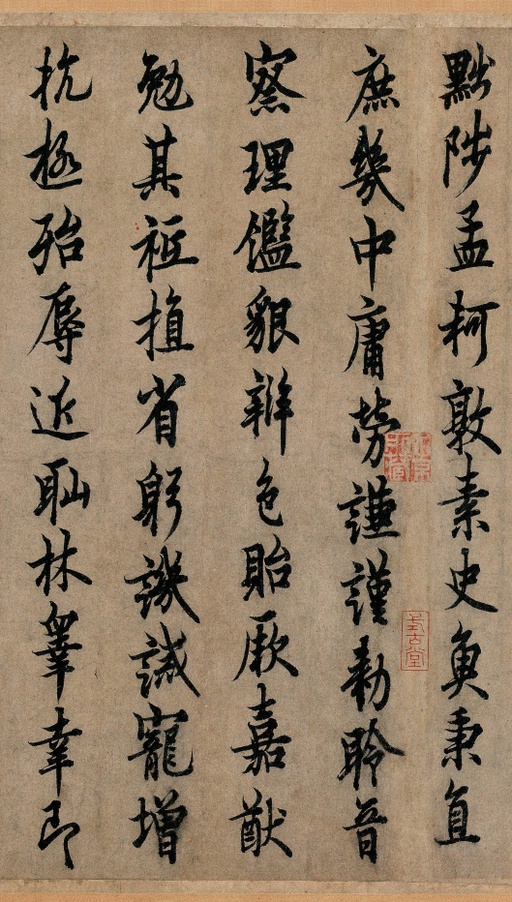 黜陟孟軻敦素史魚秉直
庶幾中庸勞謙謹勑聆音
察理鑑貌辨色貽厥嘉猷
勉其祗植省躬譏誡寵增
抗極殆辱近恥林睾幸即